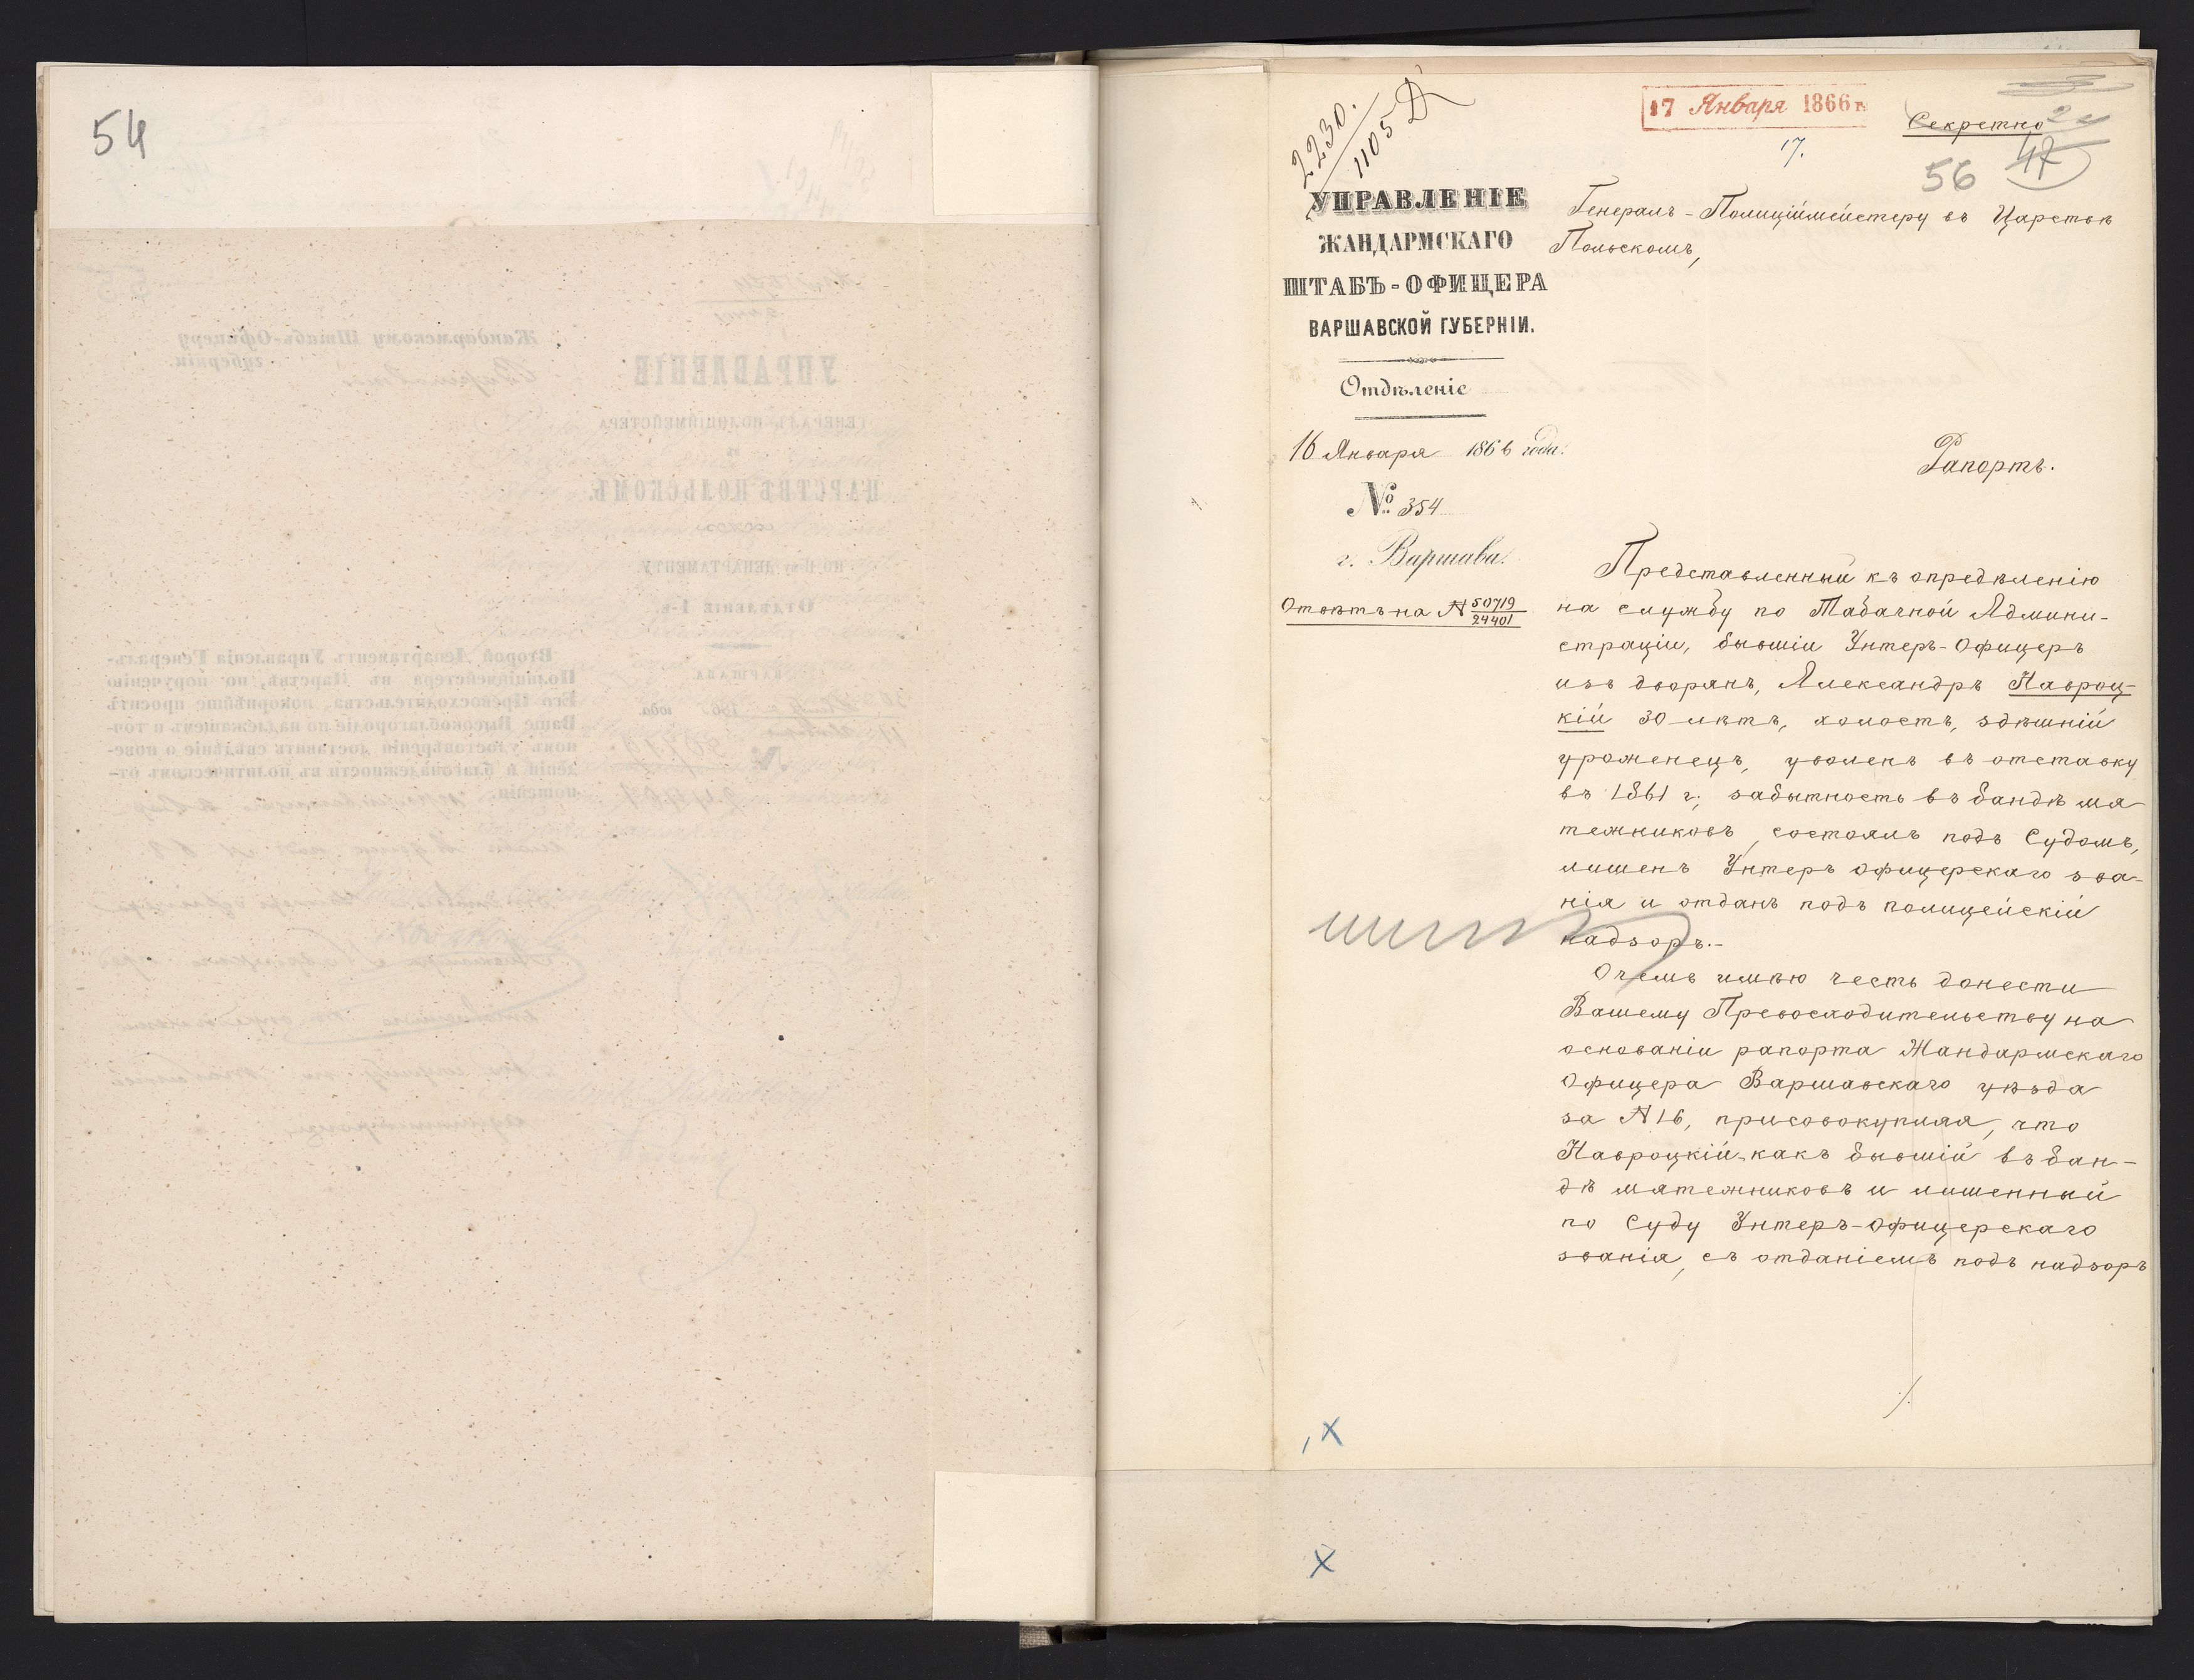 54
2230.
1105 Д
17 Января 1866 г.
17.
Секретно
56
47
УПРАВЛЕНІЕ
ЖАНДАРМСКАГО
ШТАБЪ-ОФИЦЕРА
ВАРШАВСКОЙ ГУБЕРНІИ.
Отдѣленіе
16 Января 1866 года.
№ 354
г. Варшава.
Отвѣтъ на № 50719
24401
Генералъ-Полиціймейстеру въ Царствѣ
Польскомъ,
Рапортъ.
Представленный къ опредѣленію
на службу по Табачной Админи-
страціи, бывшій Унтеръ-Офицеръ
изъ дворянъ, Александръ Навроц-
кій 30 лѣтъ, холостъ, здѣшній
уроженецъ, уволенъ въ отставку
въ 1861 г., забытность въ бандѣ мя
тежниковъ, состоялъ подъ Судомъ,
лишенъ Унтеръ офицерскаго зва-
нія и отданъ подъ полицейскій
надзоръ.-
О чемъ имѣю честь донести
Вашему Превосходительству на
основаніи рапорта Жандармскаго
Офицера Варшавскаго уѣзда
за № 16, присовокупляя, что
Навроцкій-какъ бывшій въ бан-
дѣ мятежниковъ и лишенный
по Суду Унтеръ-офицерскаго
званія, съ отданіемъ подъ надзоръ
./.
х
х